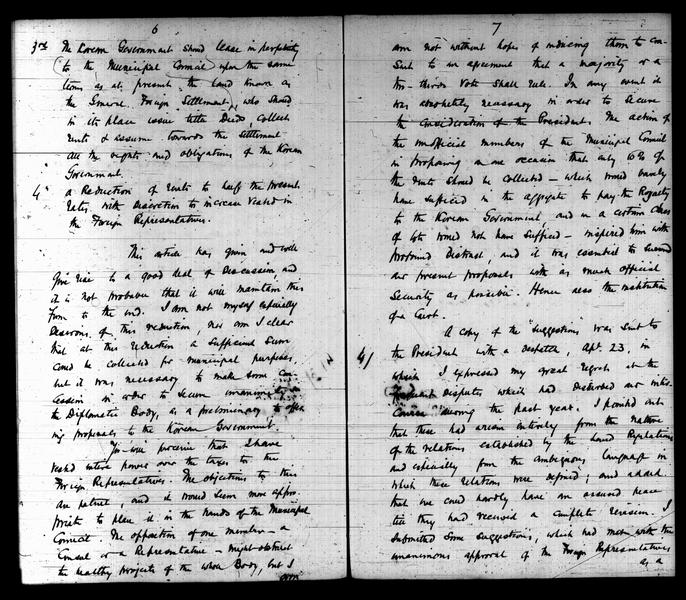 6
3rd The Korean Government should lease in perpetuity
(to the Municipal Council upon the same
terms as at present, the land known as
the General Foreign Settlement, who should
in its place issue title Deeds, collect
rents & assume towards the Settlement
all the rights and obligations of the Korean
Government.
4" a Reduction of rents to half the present
rates, with discretion to increase vested in
the Foreign Representatives.
This article has given and will
give rise to a good deal of Discussion, and
it is not probable that it will maintain this
form to the end. I am not myself especially
desirous of this reduction, nor am I clear
that at this reduction a sufficient sum
could be collected for municipal purposes,
but it was necessary to make some con-
cession in order to secure unanimity in
the Diplomatic Body, as a preliminary to
my proposals to the Korean Government.
You will perceive that I have
vested entire power over the taxes to the
Foreign Representatives. The objections to this
are patent, and it would seem more appro-
priate to place it in the hands of the Municipal
Council. The opposition of one member - a
Consul or a Representative - might obstruct
the healthy projects of the whole Body, but I
am
7
am not without hopes of inducing them to con-
sent to an agreement that a majority or a
two-thirds vote shall rule. In any event it
was absolutely necessary in order to secure
the consideration of the President. The action of
the unofficial members of the Municipal Council
in proposing on one occasion that only 6% of
the rents should be collected - which would barely
have sufficed in the aggregate to pay the Royalty
to the Korean Government, and in a certain class
of lots would not have sufficed - inspired him with
profound distrust, and it was essential to surround
our present proposals with as much official
security as possible. Hence also the institution
of a Court.
4/ A copy of the suggestions was sent to
the President with a Despatch, Apl. 23, in
which I expressed my great regret at the
frequent disputes which had disturbed our inter-
course during the past year. I pointed out
that these had arisen entirely from the nature
of the relations established by the Land Regulations
and especially from the ambiguous language in
which these relations were defined; and added
that we could hardly have an assured peace
till they had received a complete revision. I
submitted some suggestions, which had met with the
unanimous approval of the Foreign Representatives
as a